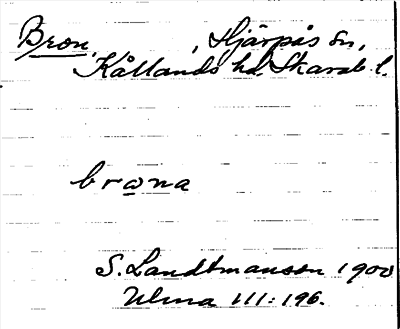 Bron, , Hjärpås sn,
Kållands hd. Skarab. l.
brona
S. Landtmanson 1900
Ulma III: 196.